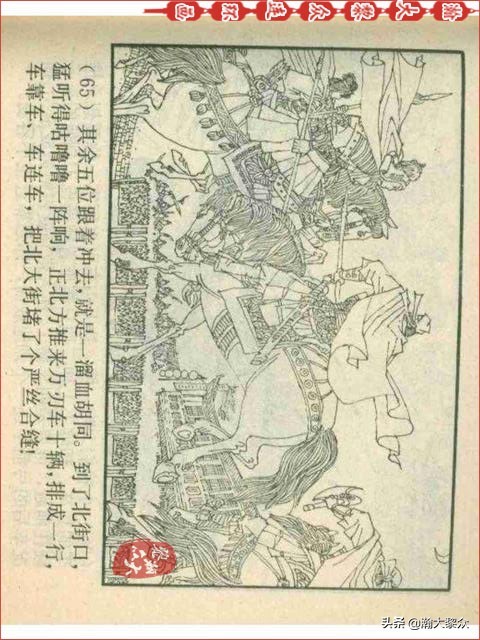 瀚大黎众连环画
(65) 其余五位跟着冲去，就是一溜血胡同。到了北街口，
猛听得咕噜噜一阵响，正北方推来万刃车十辆，排成一行，
车靠车、车连车，把北大街堵了个严丝合缝！
瀚大黎众
头条 @瀚大黎众